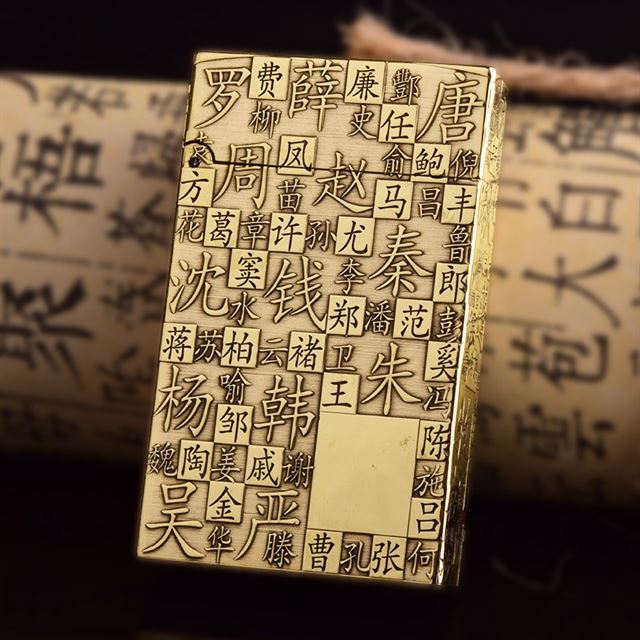 罗 费 薛 廉 酆 唐
柳 史 任
袁 周 凤 俞 鲍 倪
方 苗 赵 马 昌 丰
花 葛 章 许 孙 尤 秦 鲁
沈 窦 钱 李 郎
水 郑 潘 范 彭
蒋 苏 柏 云 褚 卫 朱 奚
杨 喻 韩 王 冯
邹 陈
魏 陶 姜 戚 谢 施
吴 金 严 吕
华 滕 曹 孔 张 何